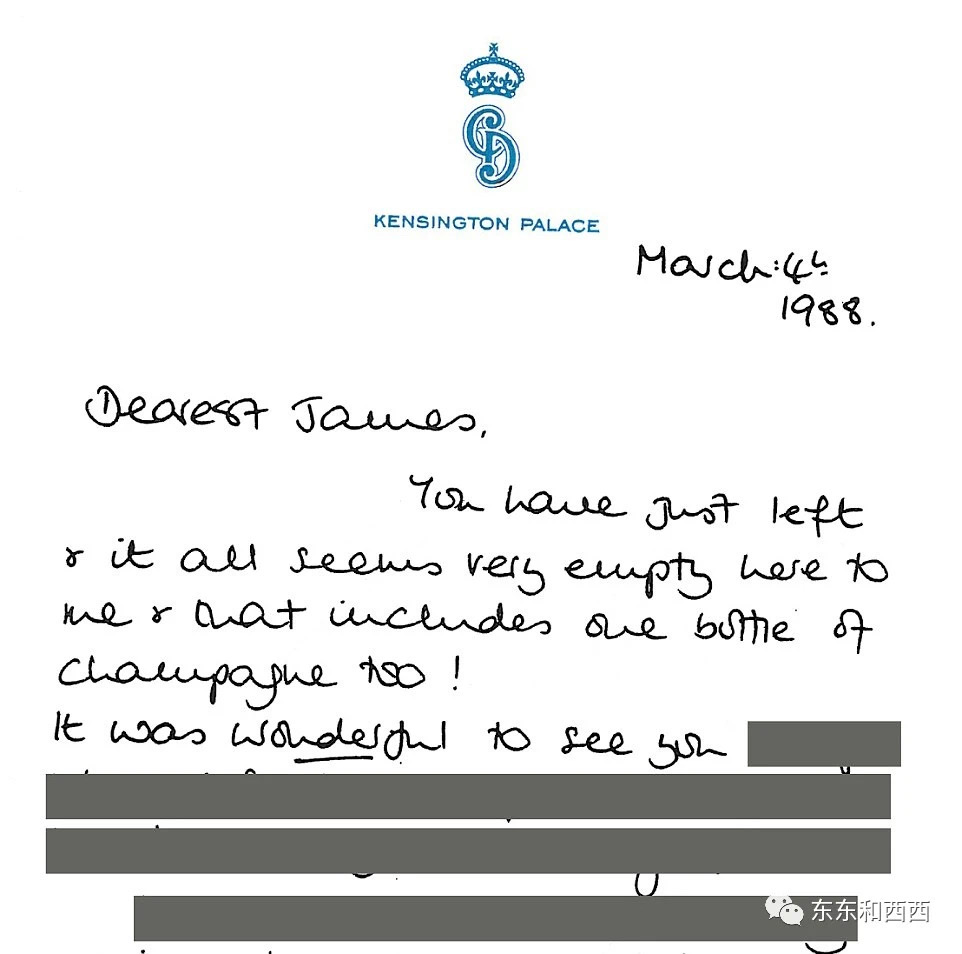 KENSINGTON PALACE
March: 4th
1988.
Dearest James,
You have just left
& it all seems very empty here to
me & that includes one bottle of
champagne too!
It was wonderful to see you
东东和西西